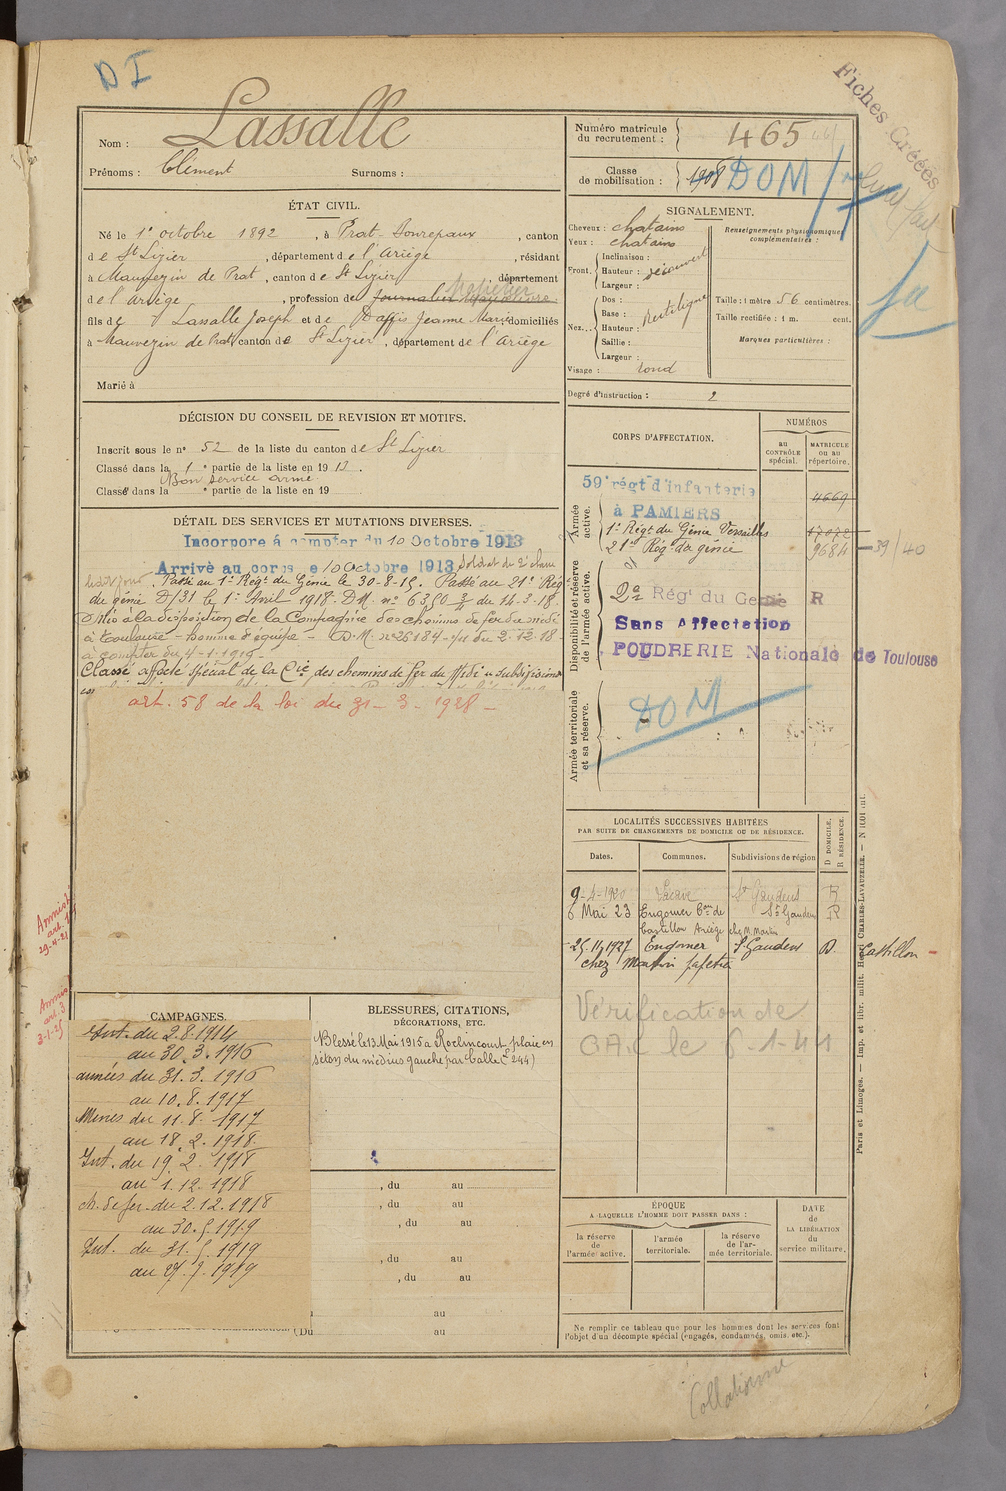 D I
Fiches Créées
Nom : Lassalle
Prénoms : Clément Surnoms :
ÉTAT CIVIL.
Né le 1er octobre 1892 , à Prat-Bonrepaux , canton
de St Lizier , département de l'Ariège , résidant
à Mauvezin de Prat , canton de St Lizier , département
de l'Ariège , profession de journalier Papetier
fils de Lassalle Joseph et de Daffis Jeanne Marie domiciliés
à Mauvezin de Prat canton de St Lizier , département de l'Ariège
Marié à
DÉCISION DU CONSEIL DE REVISION ET MOTIFS.
Inscrit sous le n° 52 de la liste du canton de St Lizier
Classé dans la 1e partie de la liste en 1913.
Bon service armé
Classé dans la e partie de la liste en 19
DÉTAIL DES SERVICES ET MUTATIONS DIVERSES.
Incorporé à compter du 10 Octobre 1913
Arrivé au corps le 10 Octobre 1913 Soldat de 2e classe
Passé au 1er Régt du Génie le 30-8-15. Passé au 21e Rég
du génie D/31 le 1er Avril 1918. DM. n° 6350 3/4 du 14-3-18.
Mis à la disposition de la Compagnie des chemins de fer du midi
à Toulouse - homme d'équipe - D.M. n° 28184 du 2-12-18
à compter du 4-1-1919-
Classé affecté spécial de la Cie des chemins de fer du Midi " subdivision
art. 58 de la loi du 31-3-1928 -
Amnistié
art. 1
29-4-21
Amnis
art. 3
3-1-25
CAMPAGNES.
Int. du 2.8.1914
au 30.3.1916
armées du 31.3.1916
au 10.8.1917
Mines du 11.8.1917
au 18.2.1918.
Int. du 19.2.1918
au 1.12.1918
ch. de fer. du 2.12.1918
au 30.5.1919
Int. du 31.5.1919
BLESSURES, CITATIONS,
DÉCORATIONS, ETC.
Blessé le 13 Mai 1916 à Roclincourt plaie en
séton du médius gauche par balle (E 244)
, du au
, du au
, du au
, du au
, du au
au
(Du au
Numéro matricule
du recrutement : 465
Classe
de mobilisation : 1908 DOM
SIGNALEMENT.
Cheveux : chatains
Yeux : chatains
Front. Inclinaison :
Hauteur : découvert
Largeur :
Nez.. Dos :
Base : Rectiligne
Hauteur :
Saillie :
Largeur :
Visage : rond
Renseignements physionomiques
complémentaires :
Taille : 1 mètre 56 centimètres.
Taille rectifiée : 1 m. cent.
Marques particulières :
Degré d'instruction : 2
CORPS D'AFFECTATION.
NUMÉROS
AU CONTRÔLE spécial.
MATRICULE OU AU répertoire.
Armée active.
59e régt d'Infanterie
à PAMIERS 4669
1er Régt du Génie Versailles 17072
21e Rég. du génie 9684 - 39/40
Disponibilité et réserve de l'armée active.
2e Régt du Genie R
Sans Affectation
POUDRERIE Nationale de Toulouse
Armée territoriale et sa réserve.
DOM
LOCALITÉS SUCCESSIVES HABITÉES
PAR SUITE DE CHANGEMENTS DE DOMICILE OU DE RÉSIDENCE.
Dates. Communes. Subdivisions de région D DOMICILE. R RÉSIDENCE.
9-4-1920 St Gaudens R
6 Mai 23 Engomer Con de St Gaudens R
Castillon Ariège chez M. Martin
25.11.1927 Engomer St Gaudens D. Castillon -
chez Martin papetier
Vérification de
le 6-1-41
ÉPOQUE
A LAQUELLE L'HOMME DOIT PASSER DANS :
la réserve de l'armée active.
l'armée territoriale.
la réserve de l'armée territoriale.
DATE
de
LA LIBÉRATION
du
service militaire.
Ne remplir ce tableau que pour les hommes dont les services font
l'objet d'un décompte spécial (engagés, condamnés, omis, etc.).
Paris et Limoges. — Imp. et libr. milit. Henri CHARLES-LAVAUZELLE.
Collationné